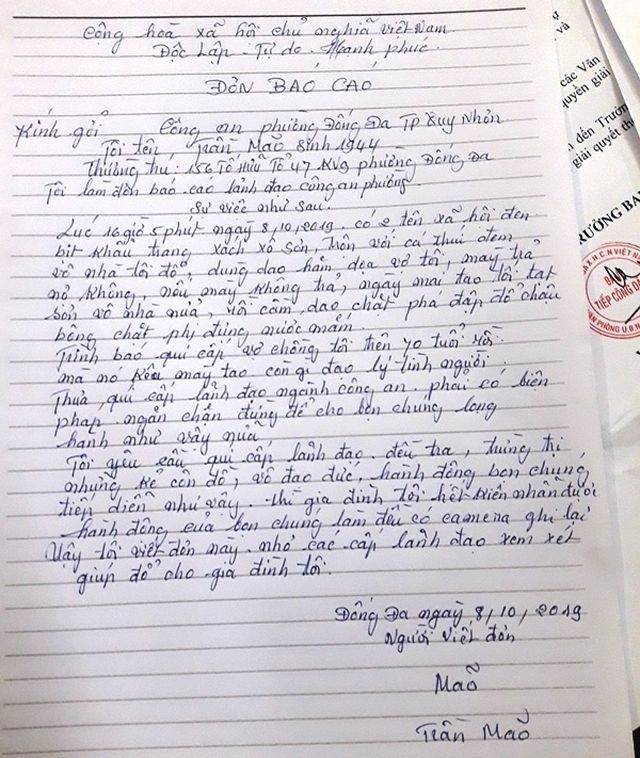 Cộng hoà xã hội chủ nghĩa việt Nam
Độc Lập - Tự do - Hạnh phúc
ĐƠN BÁO CÁO
Kính gởi Công an phường Đống Đa TP Quy Nhơn
Tôi tên Trần Mão Sinh 1944
Thường trú: 156 Tố Hữu Tổ 47 KV9 phường Đống Đa
Tôi làm đơn báo cáo lãnh đạo công an phường
Sự việc như sau:
Lúc 16 giờ 5 phút ngày 8, 10, 2019. có 2 tên xã hội đen
bịt khẩu trang xách xô sơn, trộn với cá thúi đem
vô nhà tôi đổ, dùng dao hăm dọa vợ tôi, mày trả
nợ không, nếu mày không trả, ngày mai tao lôi tạt
sơn vô nhà nữa, rồi cầm dao chặt phá đập đổ chậu
bông chặt phị đựng nước mắm.
Trình báo quí cấp vợ chồng tôi trên 70 tuổi rồi
mà nó kêu mày tao còn gì đạo lý tình người
Thưa, quí cấp lãnh đạo ngành công an phải có biện
pháp ngăn chặn đừng để cho bọn chúng lộng
hành như vậy nữa
Tôi yêu cầu quí cấp lãnh đạo điều tra, trừng trị
những kẻ côn đồ, vô đạo đức, hành động bọn chúng
tiếp diễn như vậy thì gia đình tôi hết kiên nhẫn
hành động của bọn chúng làm đều có camera ghi lại
Vậy tôi viết đơn này nhờ các cấp lãnh đạo xem xét
giúp đỡ cho gia đình tôi.
Đống Đa ngày 8, 10, 2019
Người viết đơn
Mão
Trần Mão
các Văn
quyền giải
đến Trưởn
giải quyết th
TRƯỞNG BA
H.C.N VIỆT N
BAN
TIẾP CÔNG D
PHÒNG U.B.